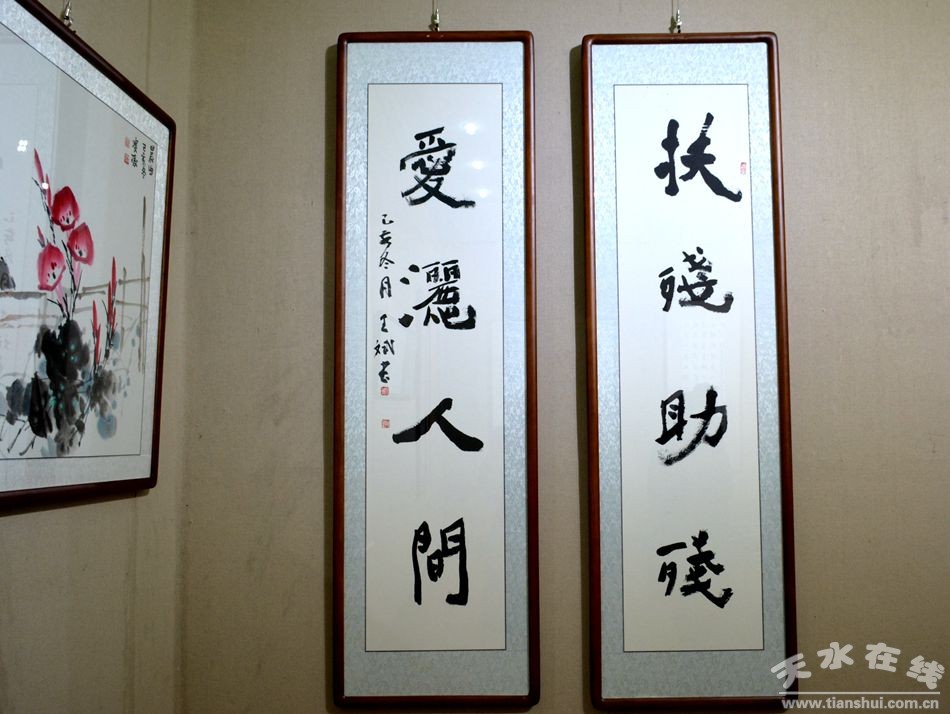 扶殘助殘
愛灑人間
己亥冬月王斌書
己亥冬
天水在线
www.tianshui.com.cn